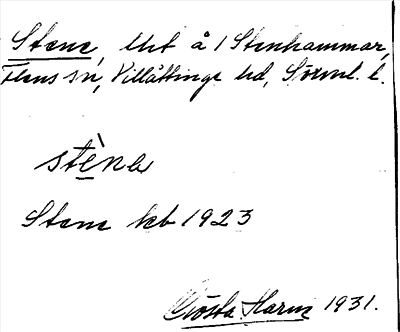 Stene, lht å / Stenhammar,
Flens sn, Villåttinge hd, Sörml. l.
stène
Stene kb 1923
Gösta Harm 1931.